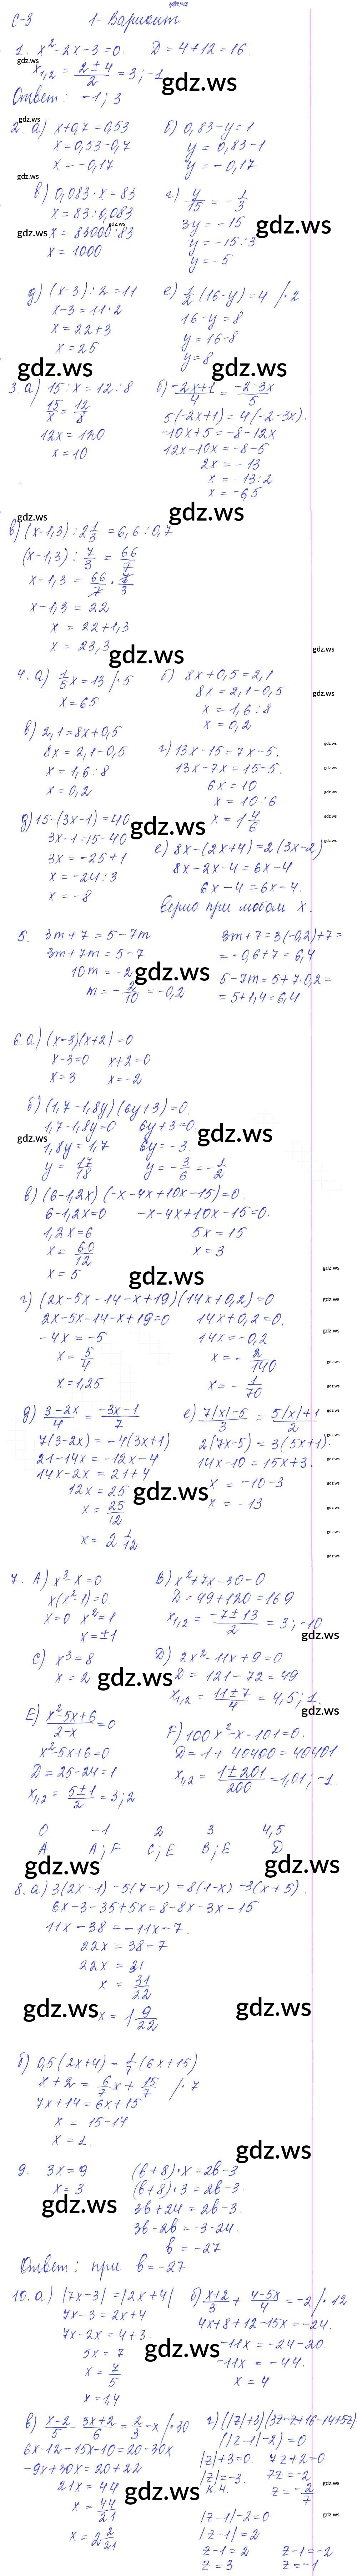 gdz.ws
С-3 1-Вариант
1. x²-2x-3=0. D=4+12=16.
x₁,₂ = (2±4)/2 = 3; -1
Ответ: -1; 3
2. а) x+0,7=0,53 б) 0,83-y=1
x=0,53-0,7 y=0,83-1
x=-0,17 y=-0,17
в) 0,083·x=83 г) y/15 = -1/3
x=83:0,083 3y=-15
x=83000:83 y=-15:3
x=1000 y=-5
д) (x-3):2=11 е) 1/2(16-y)=4 /·2
x-3=11·2 16-y=8
x=22+3 y=16-8
x=25 y=8
3. а) 15:x=12:8 б) (-2x+1)/4 = (-2-3x)/5
15/x = 12/8 5(-2x+1)=4(-2-3x).
12x=120 -10x+5=-8-12x
x=10 12x-10x=-8-5
2x=-13
x=-13:2
x=-6,5
в) (x-1,3):2 1/3=6,6:0,7
(x-1,3):7/3=66/7
x-1,3=66/7·7/3
x-1,3=22
x=22+1,3
x=23,3
4. а) 1/5x=13 /·5 б) 8x+0,5=2,1
x=65 8x=2,1-0,5
x=1,6:8
x=0,2
в) 2,1=8x+0,5
8x=2,1-0,5 г) 13x-15=7x-5.
x=1,6:8 13x-7x=15-5.
x=0,2 6x=10
x=10:6
д) 15-(3x-1)=40 x=1 4/6
3x-1=15-40 е) 8x-(2x+4)=2(3x-2)
3x=-25+1 8x-2x-4=6x-4
x=-24:3 6x-4=6x-4.
x=-8 верно при любом x.
5. 3m+7=5-7m 3m+7=3(-0,2)+7=
3m+7m=5-7 =-0,6+7=6,4
10m=-2 5-7m=5+7·0,2=
m=-2/10=-0,2 =5+1,4=6,4
6. а) (x-3)(x+2)=0
x-3=0 x+2=0
x=3 x=-2
б) (1,7-1,8y)(6y+3)=0.
1,7-1,8y=0 6y+3=0
1,8y=1,7 6y=-3.
y=17/18 y=-3/6=-1/2
в) (6-1,2x)(-x-4x+10x-15)=0.
6-1,2x=0 -x-4x+10x-15=0.
1,2x=6 5x=15
x=60/12 x=3
x=5
г) (2x-5x-14-x+19)(14x+0,2)=0
2x-5x-14-x+19=0 14x+0,2=0.
-4x=-5 14x=-0,2
x=5/4 x=-2/140
x=1,25 x=-1/70
д) (3-2x)/4 = (-3x-1)/7 е) (7|x|-5)/3 = (5|x|+1)/2
7(3-2x)=-4(3x+1) 2(7x-5)=3(5x+1).
21-14x=-12x-4 14x-10=15x+3.
14x-2x=21+4 x=-10-3
12x=25 x=-13
x=25/12
x=2 1/12
7. A) x³-x=0 B) x²+7x-30=0
x(x²-1)=0 D=49+120=169
x=0 x²=1 x₁,₂=(-7±13)/2=3; -10
x=±1
C) x³=8 D) 2x²-11x+9=0
x=2 D=121-72=49
x₁,₂=(11±7)/4=4,5; 1.
E) (x²-5x+6)/(2-x)=0 F) 100x²-x-101=0.
x²-5x+6=0 D=1+40400=40401
D=25-24=1 x₁,₂=(1±201)/200=1,01; -1.
x₁,₂=(5±1)/2=3; 2
0 -1 2 3 4,5
A A; F C; E B; E D
8. а) 3(2x-1)-5(7-x)=8(1-x)-3(x+5).
6x-3-35+5x=8-8x-3x-15
11x-38=-11x-7.
22x=38-7
22x=31
x=31/22
x=1 9/22
б) 0,5(2x+4)=1/7(6x+15)
x+2=6/7x+15/7 /·7
7x+14=6x+15
x=15-14
x=1.
9. 3x=9 (b+8)·x=2b-3
x=3 (b+8)·3=2b-3.
3b+24=2b-3.
3b-2b=-3-24.
b=-27
Ответ: при b=-27
10. а) |7x-3|=|2x+4| б) (x+2)/3+(4-5x)/4=-2 /·12
7x-3=2x+4 4x+8+12-15x=-24.
7x-2x=4+3. -11x=-24-20.
5x=7 -11x=-44.
x=7/5 x=4
x=1,4
в) (x-2)/5-(3x+2)/6=2/3-x /·30 г) (|z|+3)(3z-z+16-14+5z)
6x-12-15x-10=20-30x (|z-1|-2)=0
-9x+30x=20+22 |z|+3=0. 7z+2=0
21x=44 |z|=-3. 7z=-2
x=44/21 к.н. z=-2/7
x=2 2/21 |z-1|-2=0
|z-1|=2
z-1=2 z-1=-2
z=3 z=-1